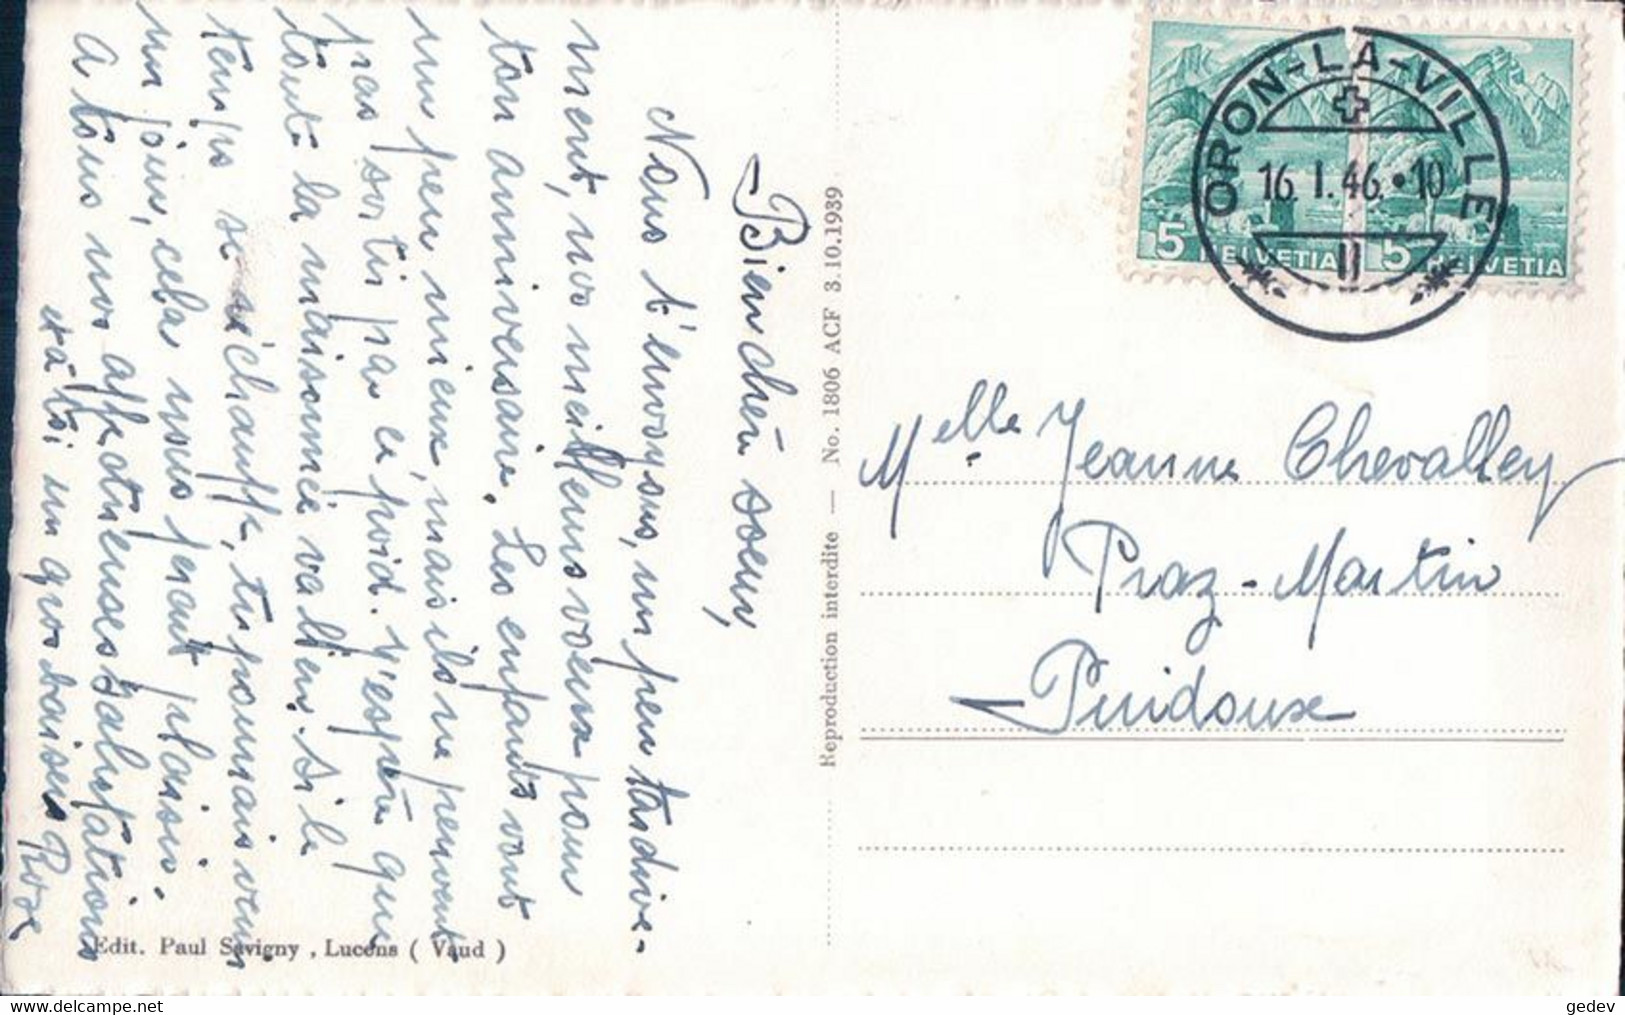 Bien chère soeur,
Nous t'envoyons, un peu tardive-
ment, nos meilleurs voeux pour
ton anniversaire. Les enfants vont
un peu mieux, mais ils ne peuvent
pas sortir par ce froid. J'espère que
toute la maisonnée va bien. Si le
temps se réchauffe, tu pourrais venir
un jour, cela nous ferait plaisir.
A tous nos affectueuses salutations
et à toi un gros baiser. Rose
Edit. Paul Savigny, Lucens ( Vaud )
Reproduction interdite — No. 1806 ACF 3.10.1939
ORON-LA-VILLE
16. I. 46.•10
5 HELVETIA
5 HELVETIA
Melle Jeanne Chevalley
Praz-Martin
Puidoux
gedev